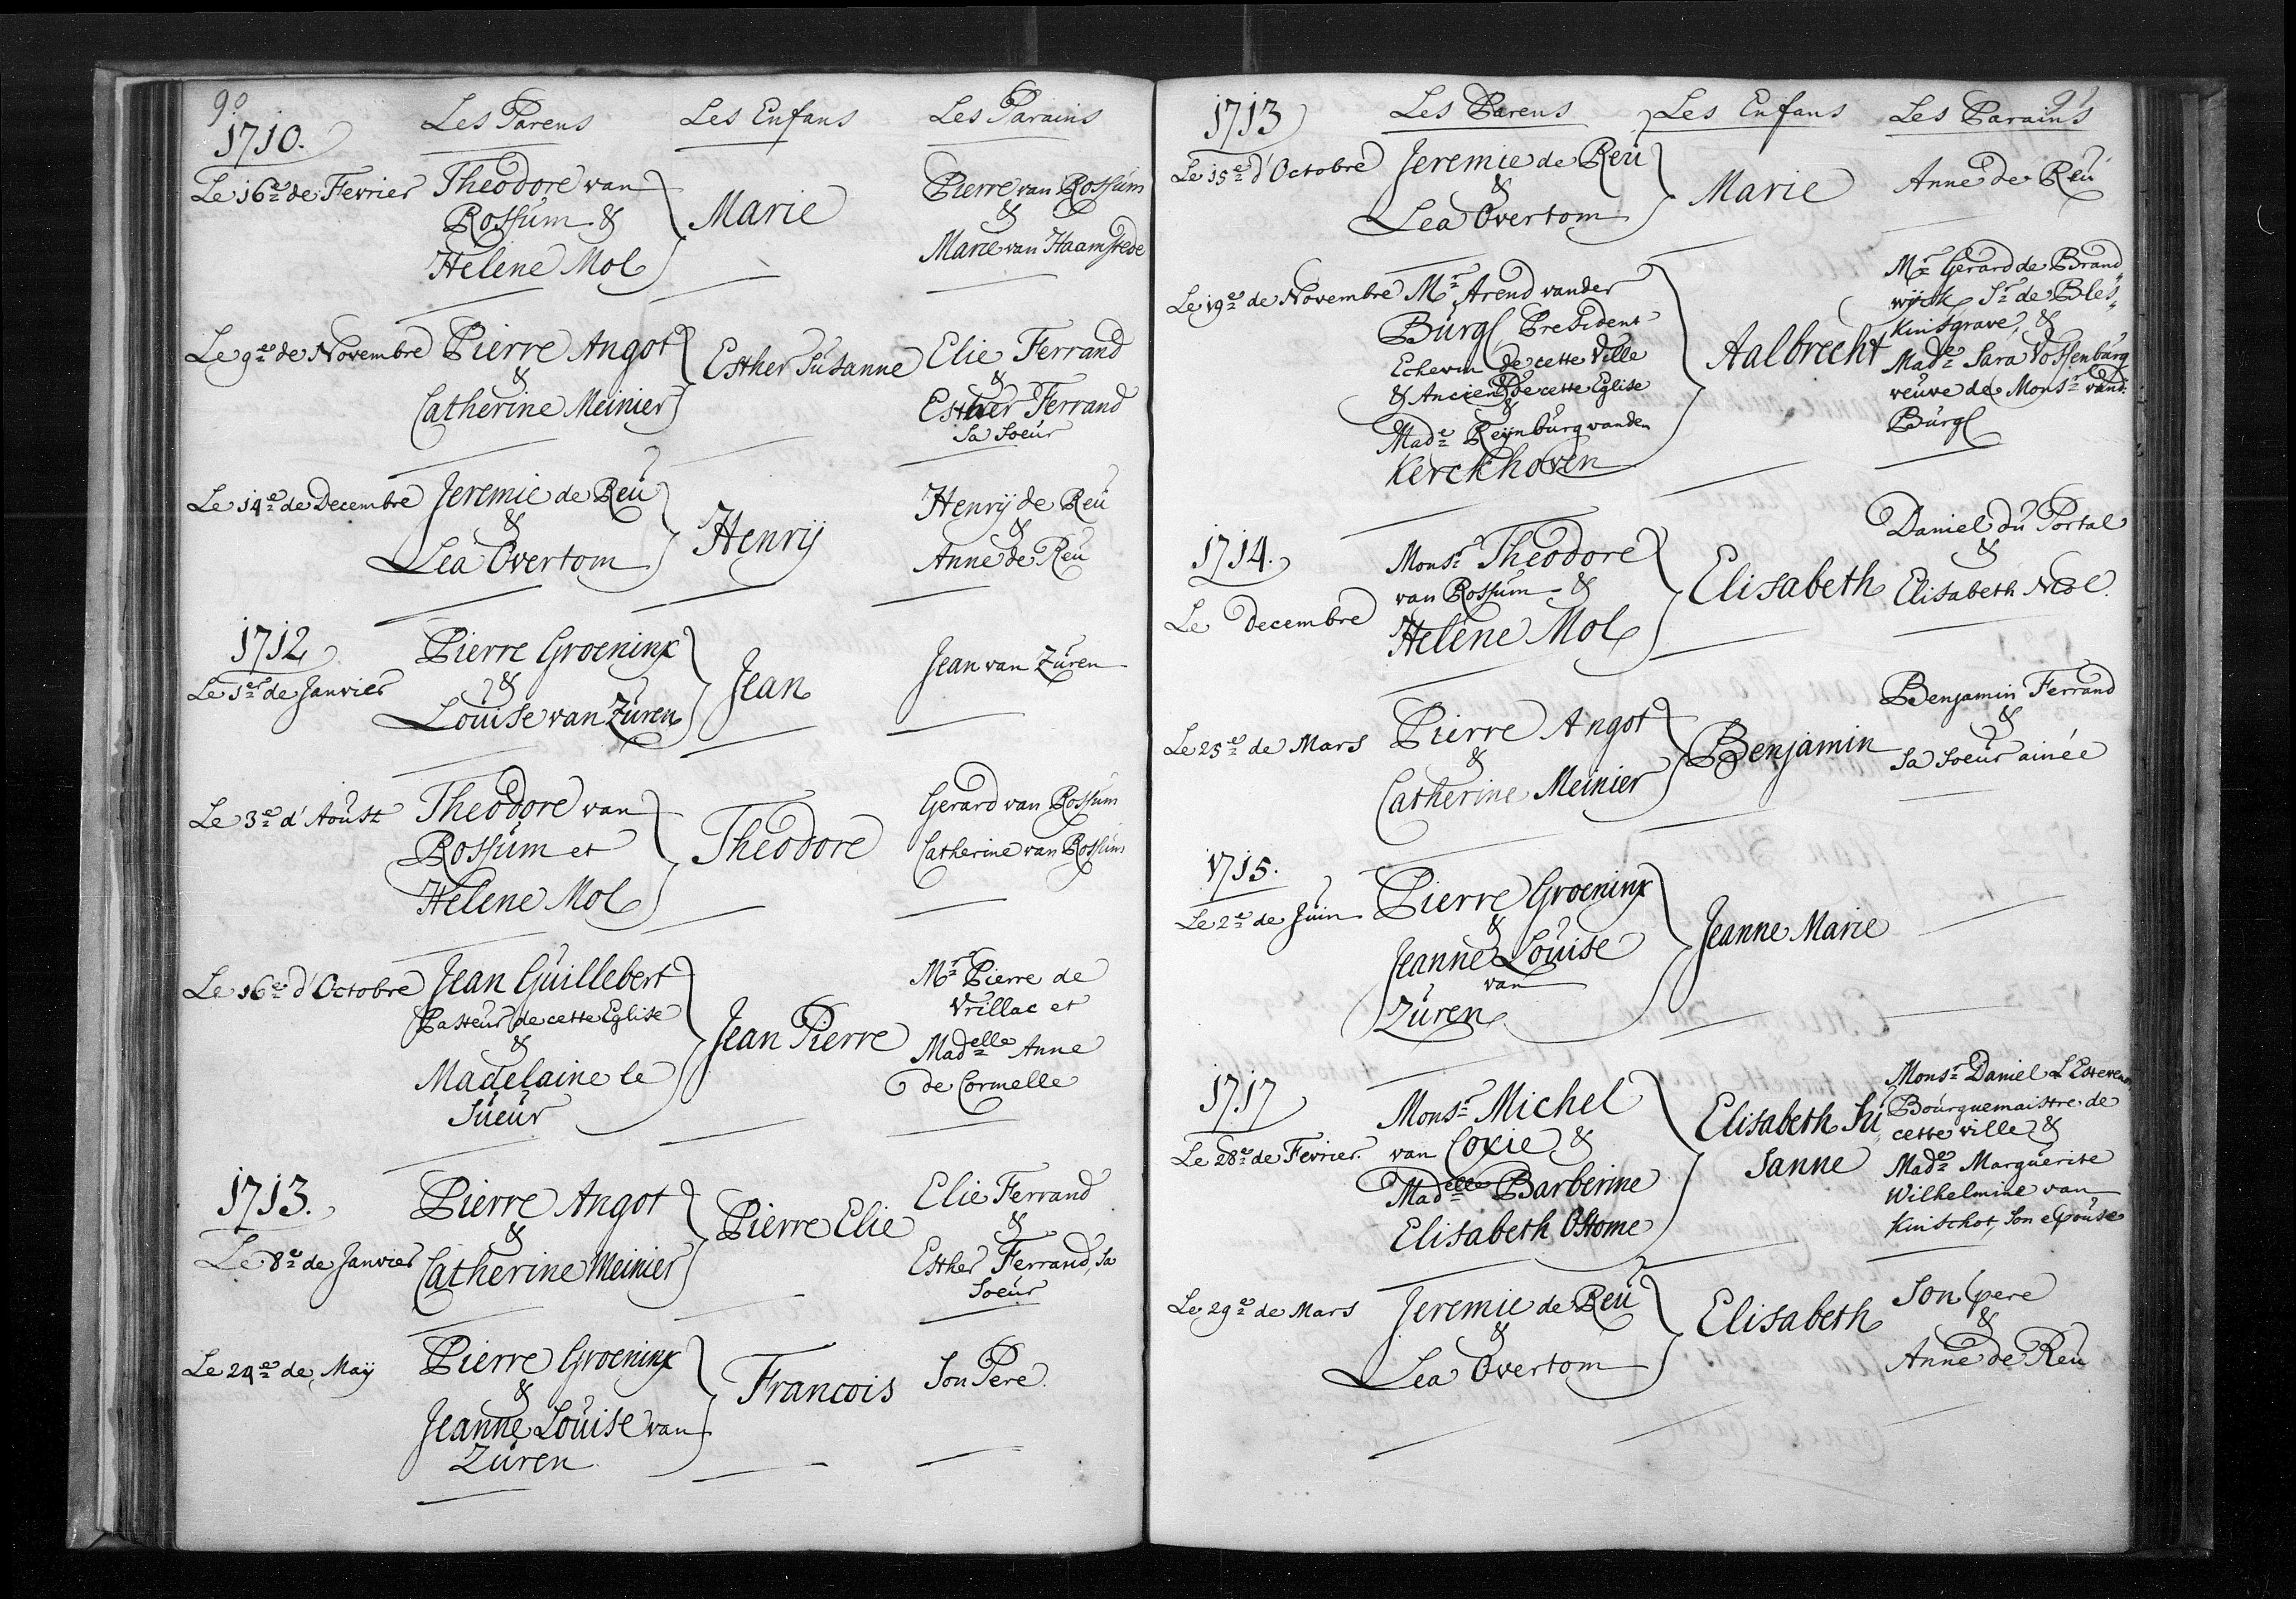 90
1710.
Les Parens
Les Enfans
Les Parains
Le 16e de Fevrier
Theodore van
Rossum &
Helene Mol
Marie
Pierre van Rossum
&
Marie van Haamstede
Le 9e de Novembre
Pierre Angot
&
Catherine Meinier
Esther Susanne
Elie Ferrand
&
Esther Ferrand
Sa Soeur
Le 14e de Decembre
Jeremie de Reu
&
Lea Overtom
Henrij
Henrij de Reu
&
Anne de Reu
1712
Le 1er de Janvier
Pierre Groeninx
&
Louise van Zuren
Jean
Jean van Zuren
Le 3e d'Aoust
Theodore van
Rossum et
Helene Mol
Theodore
Gerard van Rossum
Catherine van Rossum
Le 16e d'Octobre
Jean Guillebert
Pasteur de cette Eglise
&
Madelaine le
Sueur
Jean Pierre
Mr Pierre de
Vrillac et
Madelle Anne
de Cormelle
1713.
Le 8e de Janvier
Pierre Angot
&
Catherine Meinier
Pierre Elie
Elie Ferrand
&
Esther Ferrand, Sa
Soeur
Le 24e de Maÿ
Pierre Groeninx
&
Jeanne Louise van
Zuren
Francois
Son Pere.
91
1713
Les Parens
Les Enfans
Les Parains
Le 15e d'Octobre
Jeremie de Reu
&
Lea Overtom
Marie
Anne de Reu
Le 19e de Novembre
Mr Arend vander
Burgh President
Echevin de cette Ville
& Ancien de cette Eglise
&
Made Reijnburg vanden
Kerckhoven
Aalbrecht
Mr Gerard de Brand„
wijck Sr de Bles„
Kinsgrave, &
Made Sara Vossenburg
veuve de Monsr vand:
Burgh
1714.
Le decembre
Monsr Theodore
van Rossum &
Helene Mol
Elisabeth
Daniel du Portal
&
Elisabeth Mol.
Le 25e de Mars
Pierre Angot
&
Catherine Meinier
Benjamin
Benjamin Ferrand
&
Sa Soeur ainée
1715.
Le 2e de Juin
Pierre Groeninx
&
Jeanne Louise
van
Zuren
Jeanne Marie
1717
Le 28e de Fevrier.
Monsr Michel
van Coxie &
Madelle Barberine
Elisabeth Ostome
Elisabeth Su„
sanne
Monsr Daniel L'Estevenon
Bourguemaistre de
cette ville &
Made Marguerite
Wilhelmine van
Kinschot, Son epouse
Le 29e de Mars
Jeremie de Reu
&
Lea Overtom
Elisabeth
Son pere
&
Anne de Reu